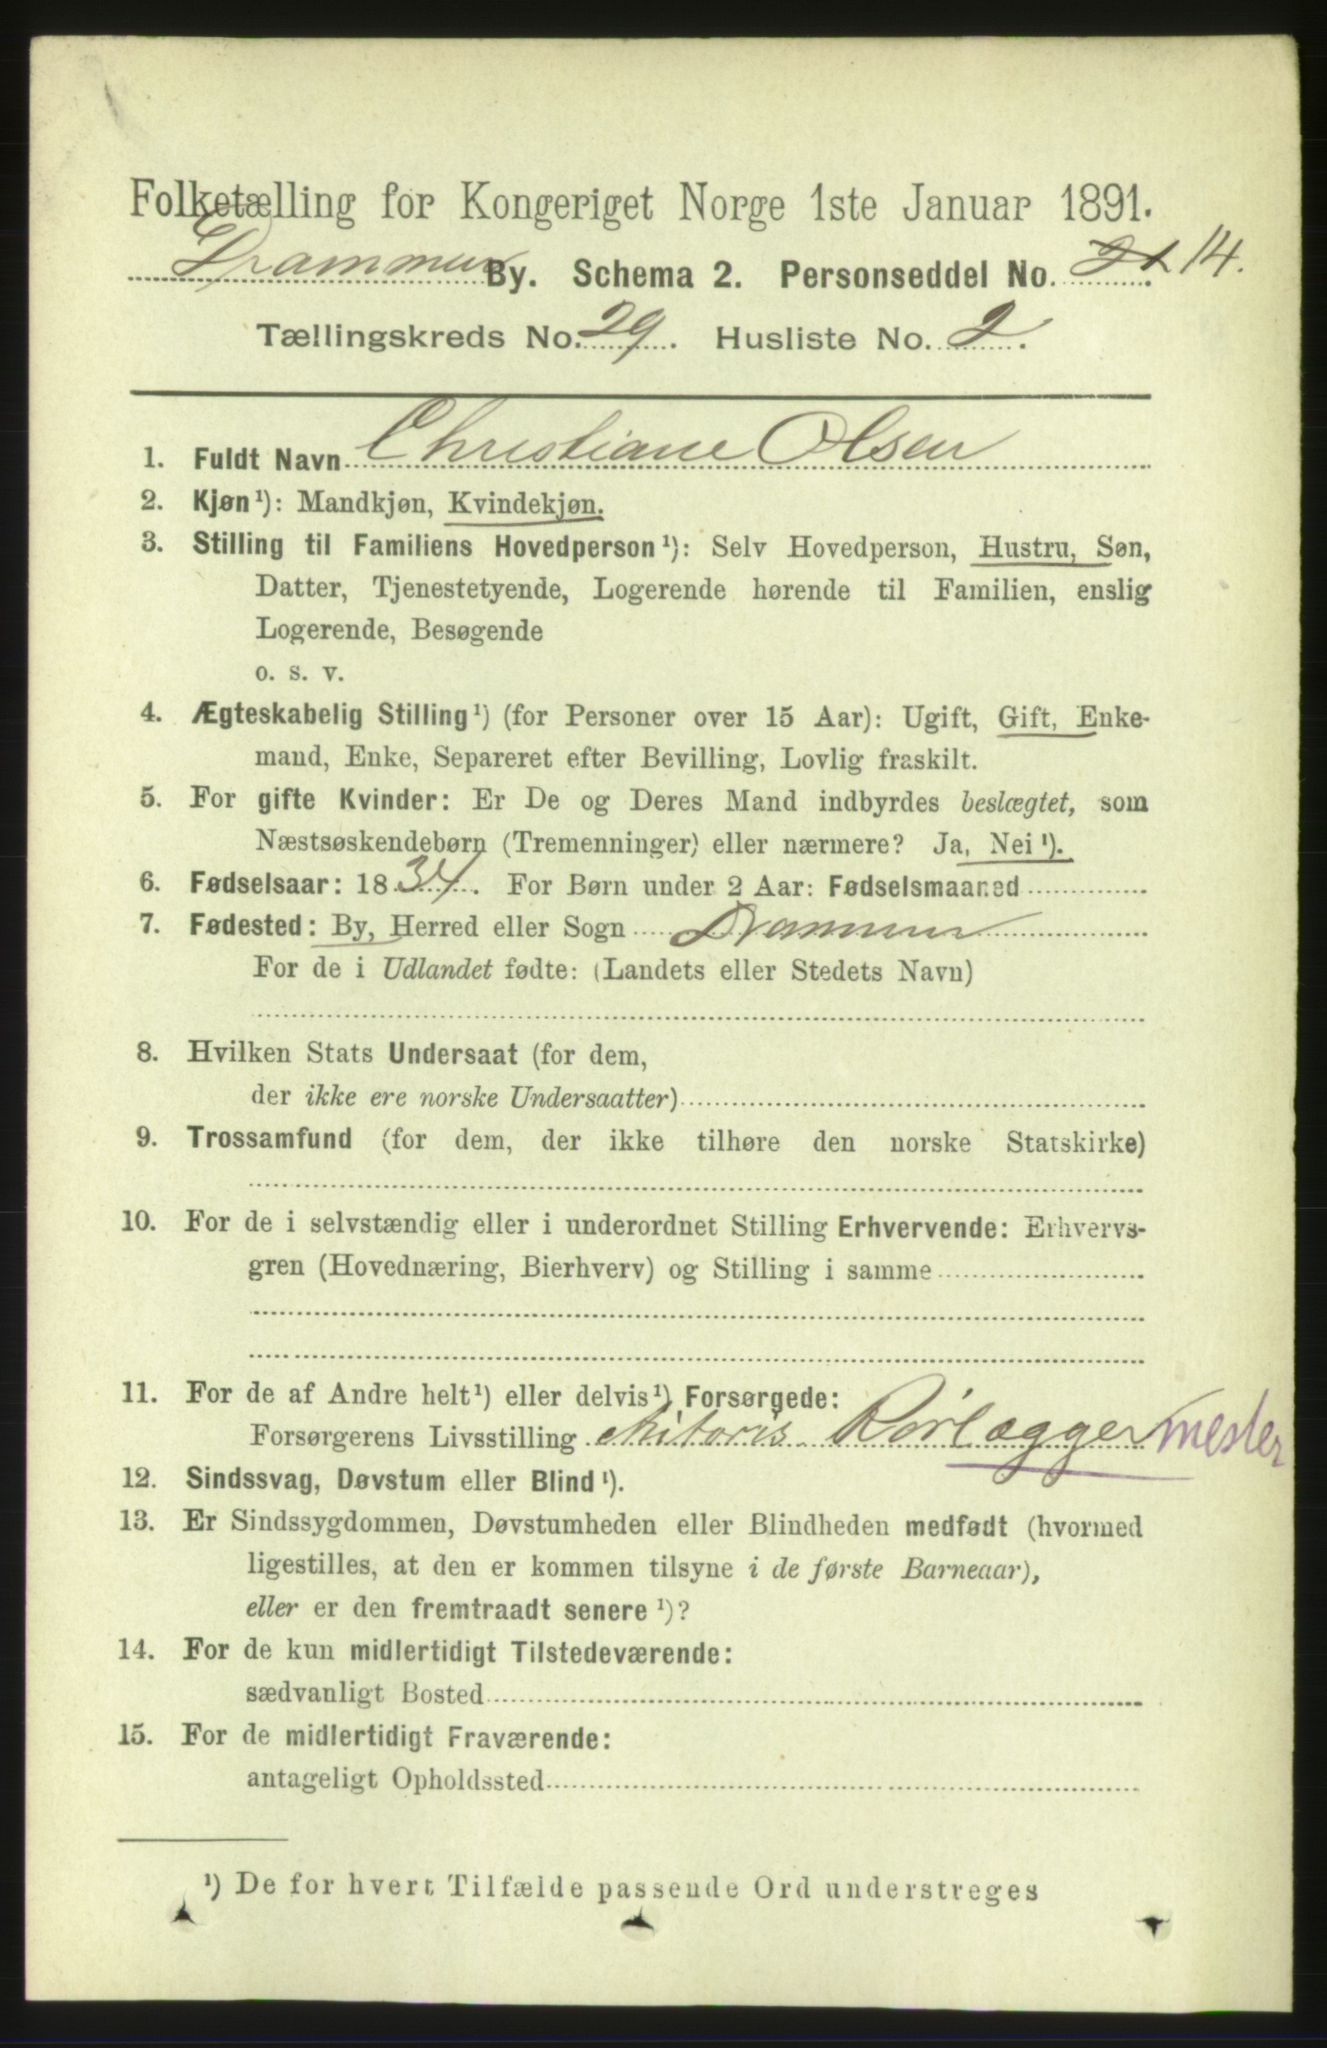 Folketælling for Kongeriget Norge 1ste Januar 1891.
Drammen By. Schema 2. Personseddel No. 14.
Tællingskreds No. 29. Husliste No. 2.
1. Fuldt Navn Christiane Olsen
2. Kjøn¹): Mandkjøn, Kvindekjøn.
3. Stilling til Familiens Hovedperson¹): Selv Hovedperson, Hustru, Søn,
Datter, Tjenestetyende, Logerende hørende til Familien, enslig
Logerende, Besøgende
o. s. v.
4. Ægteskabelig Stilling¹) (for Personer over 15 Aar): Ugift, Gift, Enke-
mand, Enke, Separeret efter Bevilling, Lovlig fraskilt.
5. For gifte Kvinder: Er De og Deres Mand indbyrdes beslægtet, som
Næstsøskendebørn (Tremenninger) eller nærmere? Ja, Nei¹).
6. Fødselsaar: 1834. For Børn under 2 Aar: Fødselsmaaned
7. Fødested: By, Herred eller Sogn Drammen
For de i Udlandet fødte: (Landets eller Stedets Navn)
8. Hvilken Stats Undersaat (for dem,
der ikke ere norske Undersaatter)
9. Trossamfund (for dem, der ikke tilhøre den norske Statskirke)
10. For de i selvstændig eller i underordnet Stilling Erhvervende: Erhvervs-
gren (Hovednæring, Bierhverv) og Stilling i samme
11. For de af Andre helt¹) eller delvis¹) Forsørgede:
Forsørgerens Livsstilling Rørlæggermester
12. Sindssvag, Døvstum eller Blind¹).
13. Er Sindssygdommen, Døvstumheden eller Blindheden medfødt (hvormed
ligestilles, at den er kommen tilsyne i de første Barneaar),
eller er den fremtraadt senere¹)?
14. For de kun midlertidigt Tilstedeværende:
sædvanligt Bosted
15. For de midlertidigt Fraværende:
antageligt Opholdssted
¹) De for hvert Tilfælde passende Ord understreges